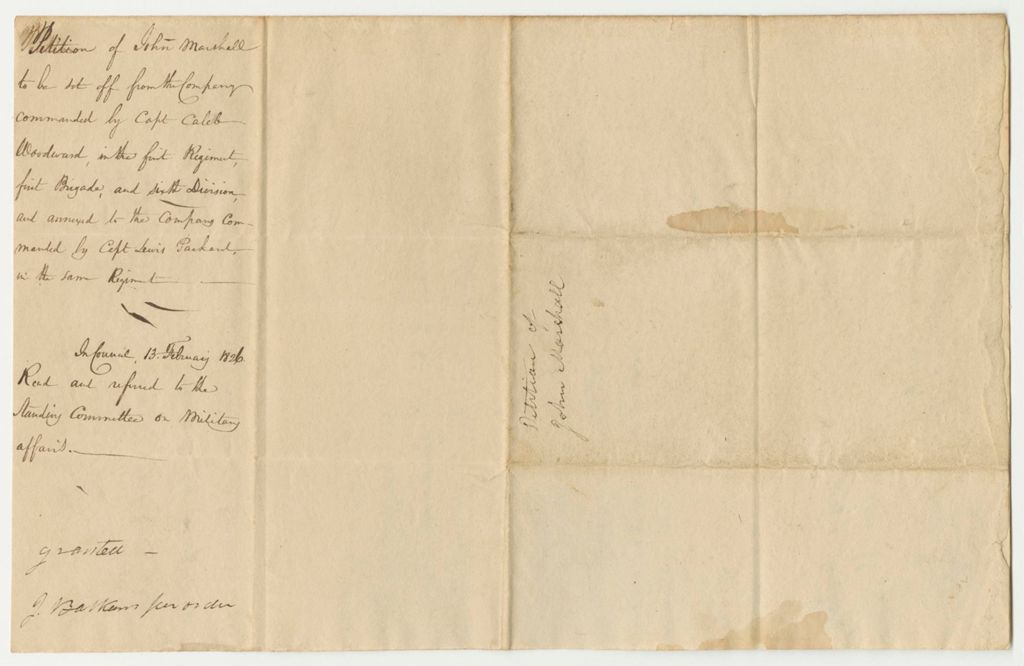 Petition of John Marshall
to be set off from the Company
commanded by Capt Caleb
Woodward, in the first Regiment,
first Brigade, and sixth Division,
and annexed to the Company Com-
manded by Capt Lewis Packard,
in the same Regiment
In Council, 13. February 1826.
Read and referred to the
Standing Committee on Military
affairs.
granted —
J. per order
Petition of
John Marshall